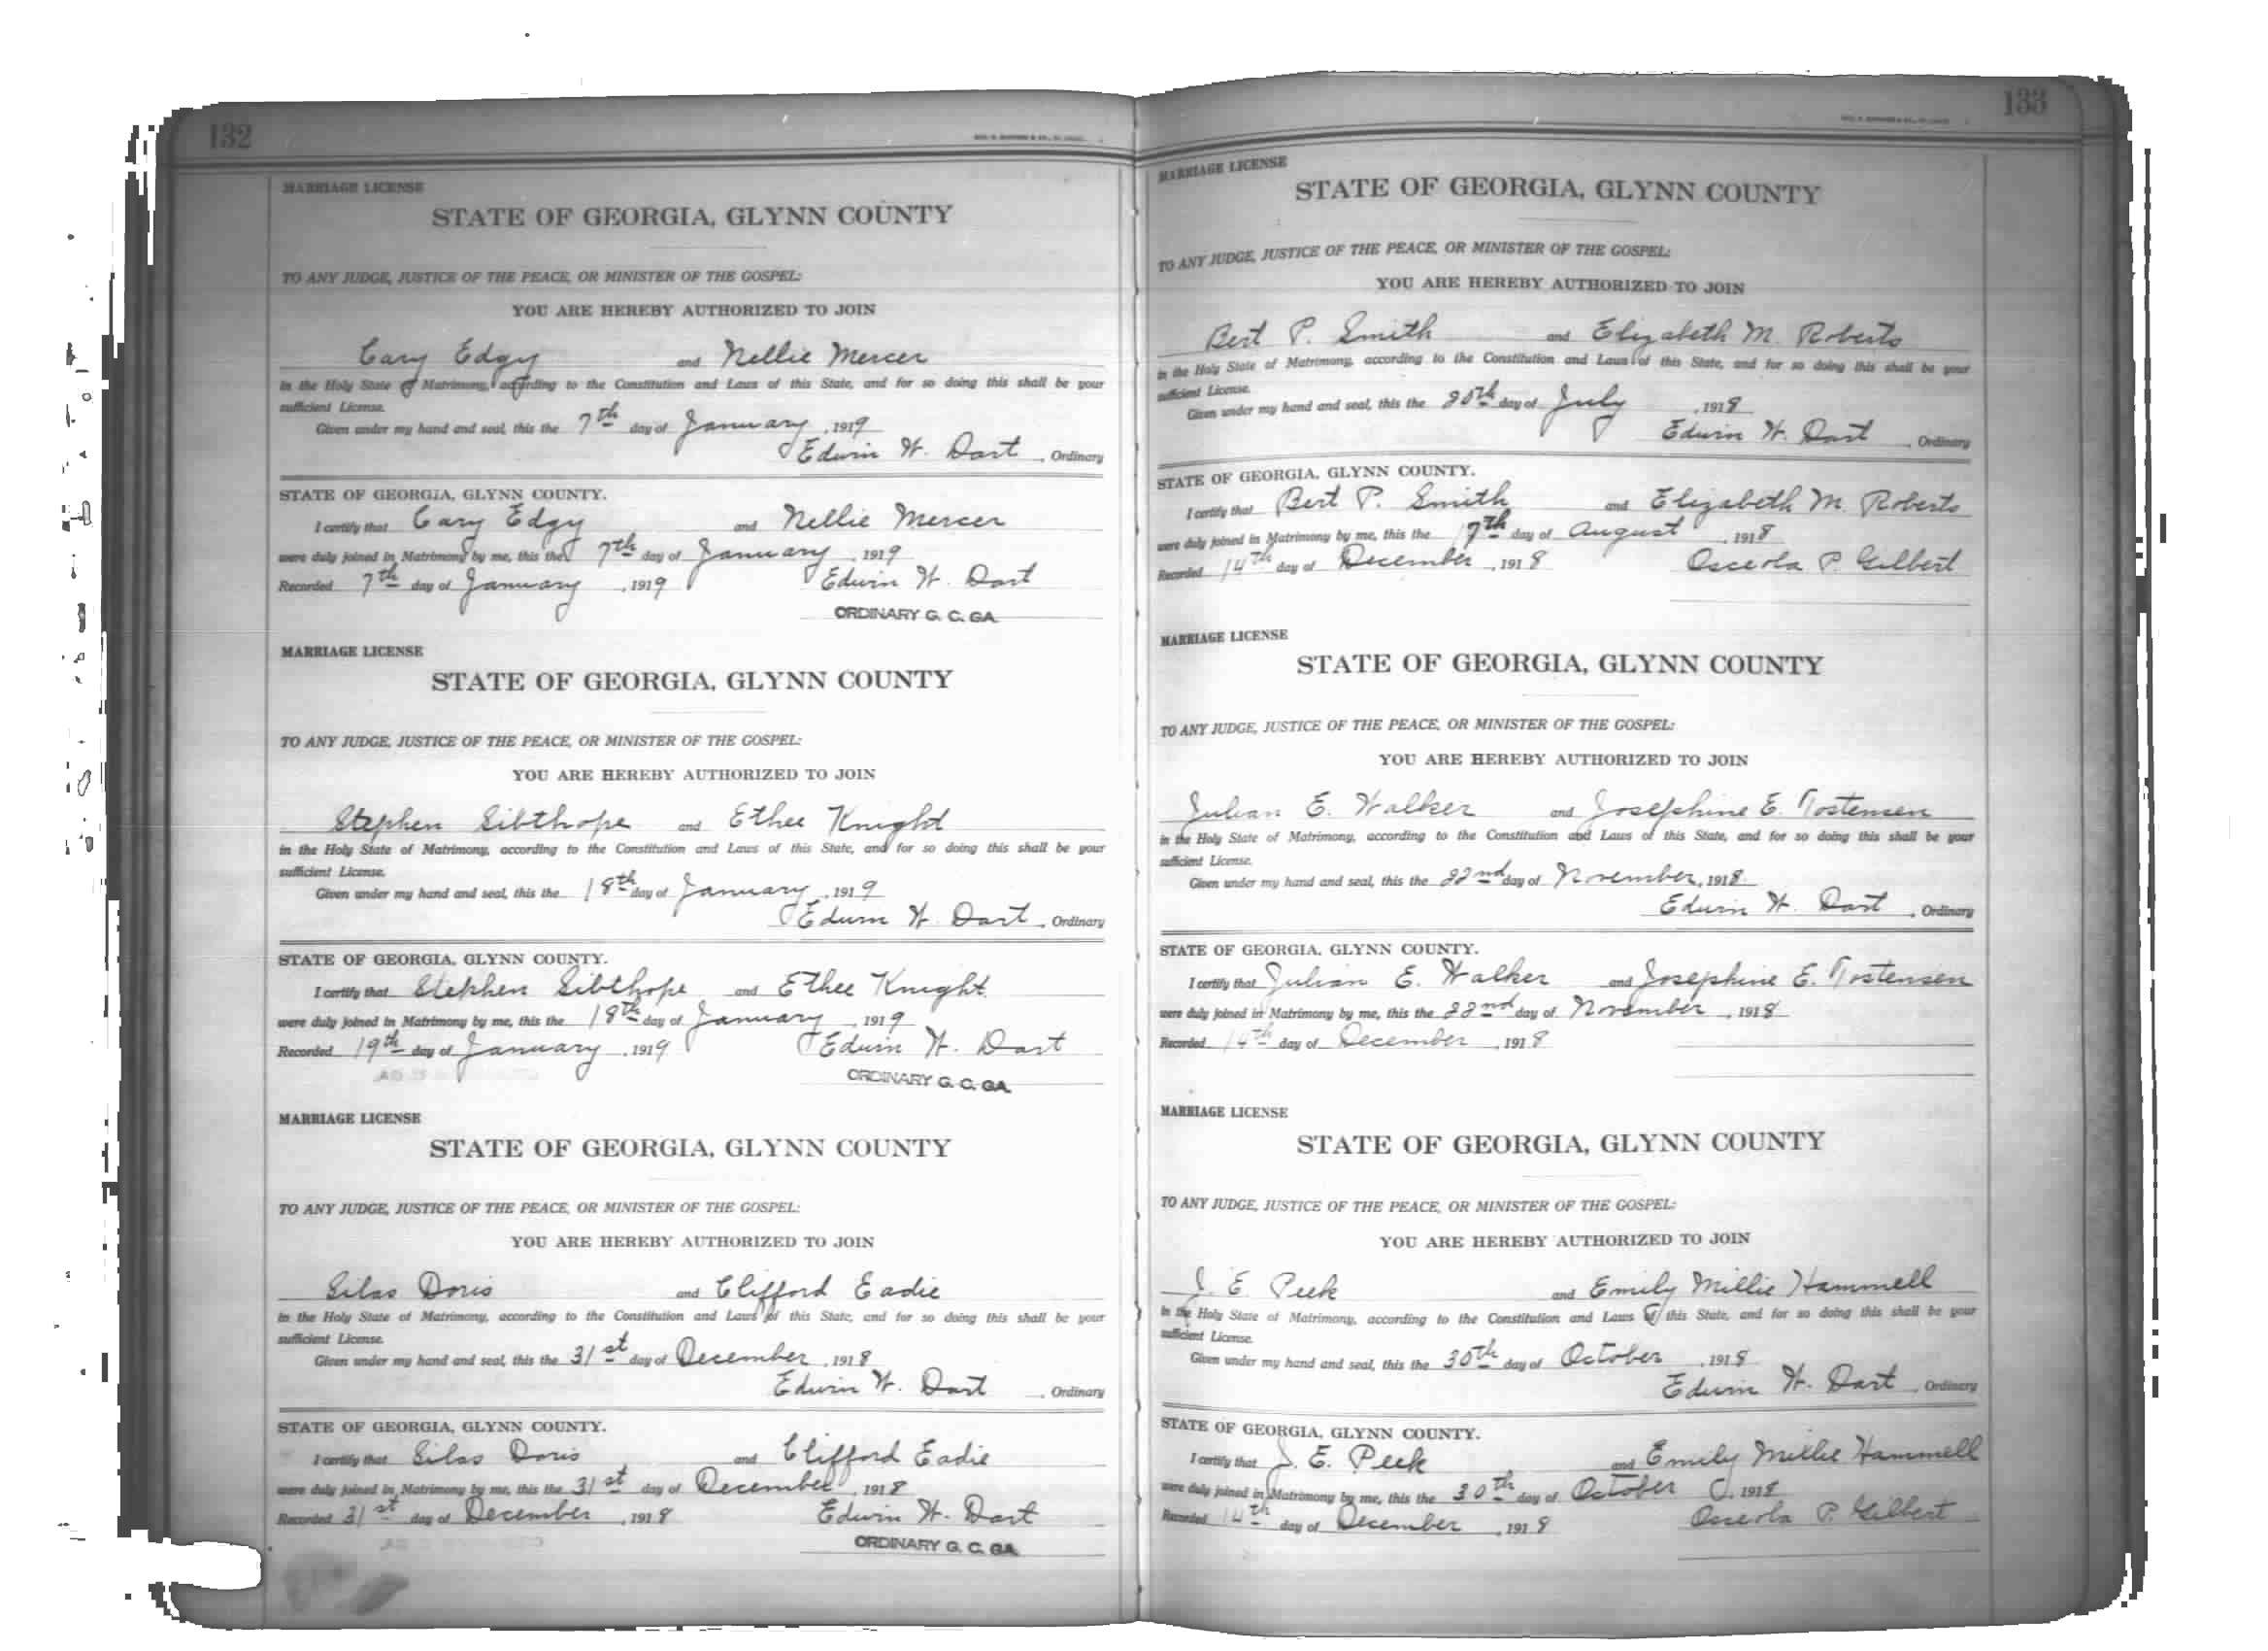 132
MARRIAGE LICENSE
STATE OF GEORGIA, GLYNN COUNTY
TO ANY JUDGE, JUSTICE OF THE PEACE, OR MINISTER OF THE GOSPEL:
YOU ARE HEREBY AUTHORIZED TO JOIN
Cary Edgy and Nellie Mercer
in the Holy State of Matrimony, according to the Constitution and Laws of this State, and for so doing this shall be your
sufficient License.
Given under my hand and seal, this the 7th day of January, 1919
Edwin W. Dart, Ordinary
STATE OF GEORGIA, GLYNN COUNTY.
I certify that Cary Edgy and Nellie Mercer
were duly joined in Matrimony by me, this the 7th day of January, 1919
Recorded 7th day of January, 1919 Edwin W. Dart
ORDINARY G. C. GA.
MARRIAGE LICENSE
STATE OF GEORGIA, GLYNN COUNTY
TO ANY JUDGE, JUSTICE OF THE PEACE, OR MINISTER OF THE GOSPEL:
YOU ARE HEREBY AUTHORIZED TO JOIN
Stephen Sibthorpe and Ethee Knight
in the Holy State of Matrimony, according to the Constitution and Laws of this State, and for so doing this shall be your
sufficient License.
Given under my hand and seal, this the 18th day of January, 1919
Edwin W. Dart, Ordinary
STATE OF GEORGIA, GLYNN COUNTY.
I certify that Stephen Sibthorpe and Ethee Knight
were duly joined in Matrimony by me, this the 18th day of January, 1919
Recorded 19th day of January, 1919 Edwin W. Dart
ORDINARY G. C. GA.
MARRIAGE LICENSE
STATE OF GEORGIA, GLYNN COUNTY
TO ANY JUDGE, JUSTICE OF THE PEACE, OR MINISTER OF THE GOSPEL:
YOU ARE HEREBY AUTHORIZED TO JOIN
Silas Doris and Clifford Eadie
in the Holy State of Matrimony, according to the Constitution and Laws of this State, and for so doing this shall be your
sufficient License.
Given under my hand and seal, this the 31st day of December, 1918
Edwin W. Dart, Ordinary
STATE OF GEORGIA, GLYNN COUNTY.
I certify that Silas Doris and Clifford Eadie
were duly joined in Matrimony by me, this the 31st day of December, 1918
Recorded 31st day of December, 1918 Edwin W. Dart
ORDINARY G. C. GA.
133
MARRIAGE LICENSE
STATE OF GEORGIA, GLYNN COUNTY
TO ANY JUDGE, JUSTICE OF THE PEACE, OR MINISTER OF THE GOSPEL:
YOU ARE HEREBY AUTHORIZED TO JOIN
Bert P. Smith and Elizabeth M. Roberts
in the Holy State of Matrimony, according to the Constitution and Laws of this State, and for so doing this shall be your
sufficient License.
Given under my hand and seal, this the 20th day of July, 1918
Edwin W. Dart, Ordinary
STATE OF GEORGIA, GLYNN COUNTY.
I certify that Bert P. Smith and Elizabeth M. Roberts
were duly joined in Matrimony by me, this the 17th day of August, 1918
Recorded 14th day of December, 1918 Osceola P. Gilbert
MARRIAGE LICENSE
STATE OF GEORGIA, GLYNN COUNTY
TO ANY JUDGE, JUSTICE OF THE PEACE, OR MINISTER OF THE GOSPEL:
YOU ARE HEREBY AUTHORIZED TO JOIN
Julian E. Walker and Josephine E. Tostensen
in the Holy State of Matrimony, according to the Constitution and Laws of this State, and for so doing this shall be your
sufficient License.
Given under my hand and seal, this the 22nd day of November, 1918
Edwin W. Dart, Ordinary
STATE OF GEORGIA, GLYNN COUNTY.
I certify that Julian E. Walker and Josephine E. Tostensen
were duly joined in Matrimony by me, this the 22nd day of November, 1918
Recorded 14th day of December, 1918
MARRIAGE LICENSE
STATE OF GEORGIA, GLYNN COUNTY
TO ANY JUDGE, JUSTICE OF THE PEACE, OR MINISTER OF THE GOSPEL:
YOU ARE HEREBY AUTHORIZED TO JOIN
J. E. Peek and Emily Millie Hammell
in the Holy State of Matrimony, according to the Constitution and Laws of this State, and for so doing this shall be your
sufficient License.
Given under my hand and seal, this the 30th day of October, 1918
Edwin W. Dart, Ordinary
STATE OF GEORGIA, GLYNN COUNTY.
I certify that J. E. Peek and Emily Millie Hammell
were duly joined in Matrimony by me, this the 30th day of October, 1918
Recorded 14th day of December, 1918 Osceola P. Gilbert